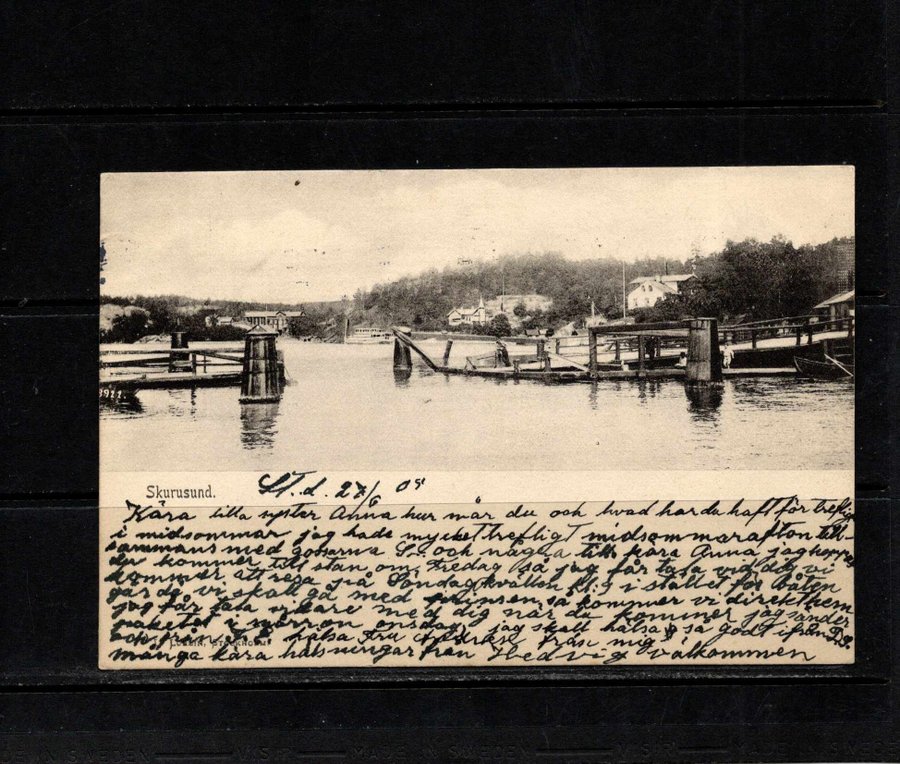 3922.
Skurusund.
St. d. 27/6 05
Kära lilla syster Anna hur mår du och hvad har du haft för trefligt
i midsommar jag hade mycket trefligt midsommarafton till-
sammans med gossarna och några till kära Anna jag hoppas
du kommer till stan om Fredag så jag får tala vid dig vi
kommer att resa på Söndagkväll kl. 9 i stället för Båten
går de vi skall gå med prinsen så kommer vi direkt hem
jag får tala vidare med dig när du kommer jag sänder
paketet i morron onsdag, jag skall hälsa så godt ifrån
och hälsa Fru från mig
många kära hälsningar från Hedvig välkommen
STOCKHOLM
MADE IN SWEDEN